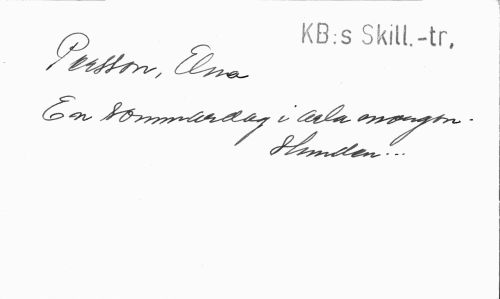 KB:s Skill.-tr.
Persson, Elna
En sommardag i arla morgon-
stunden...